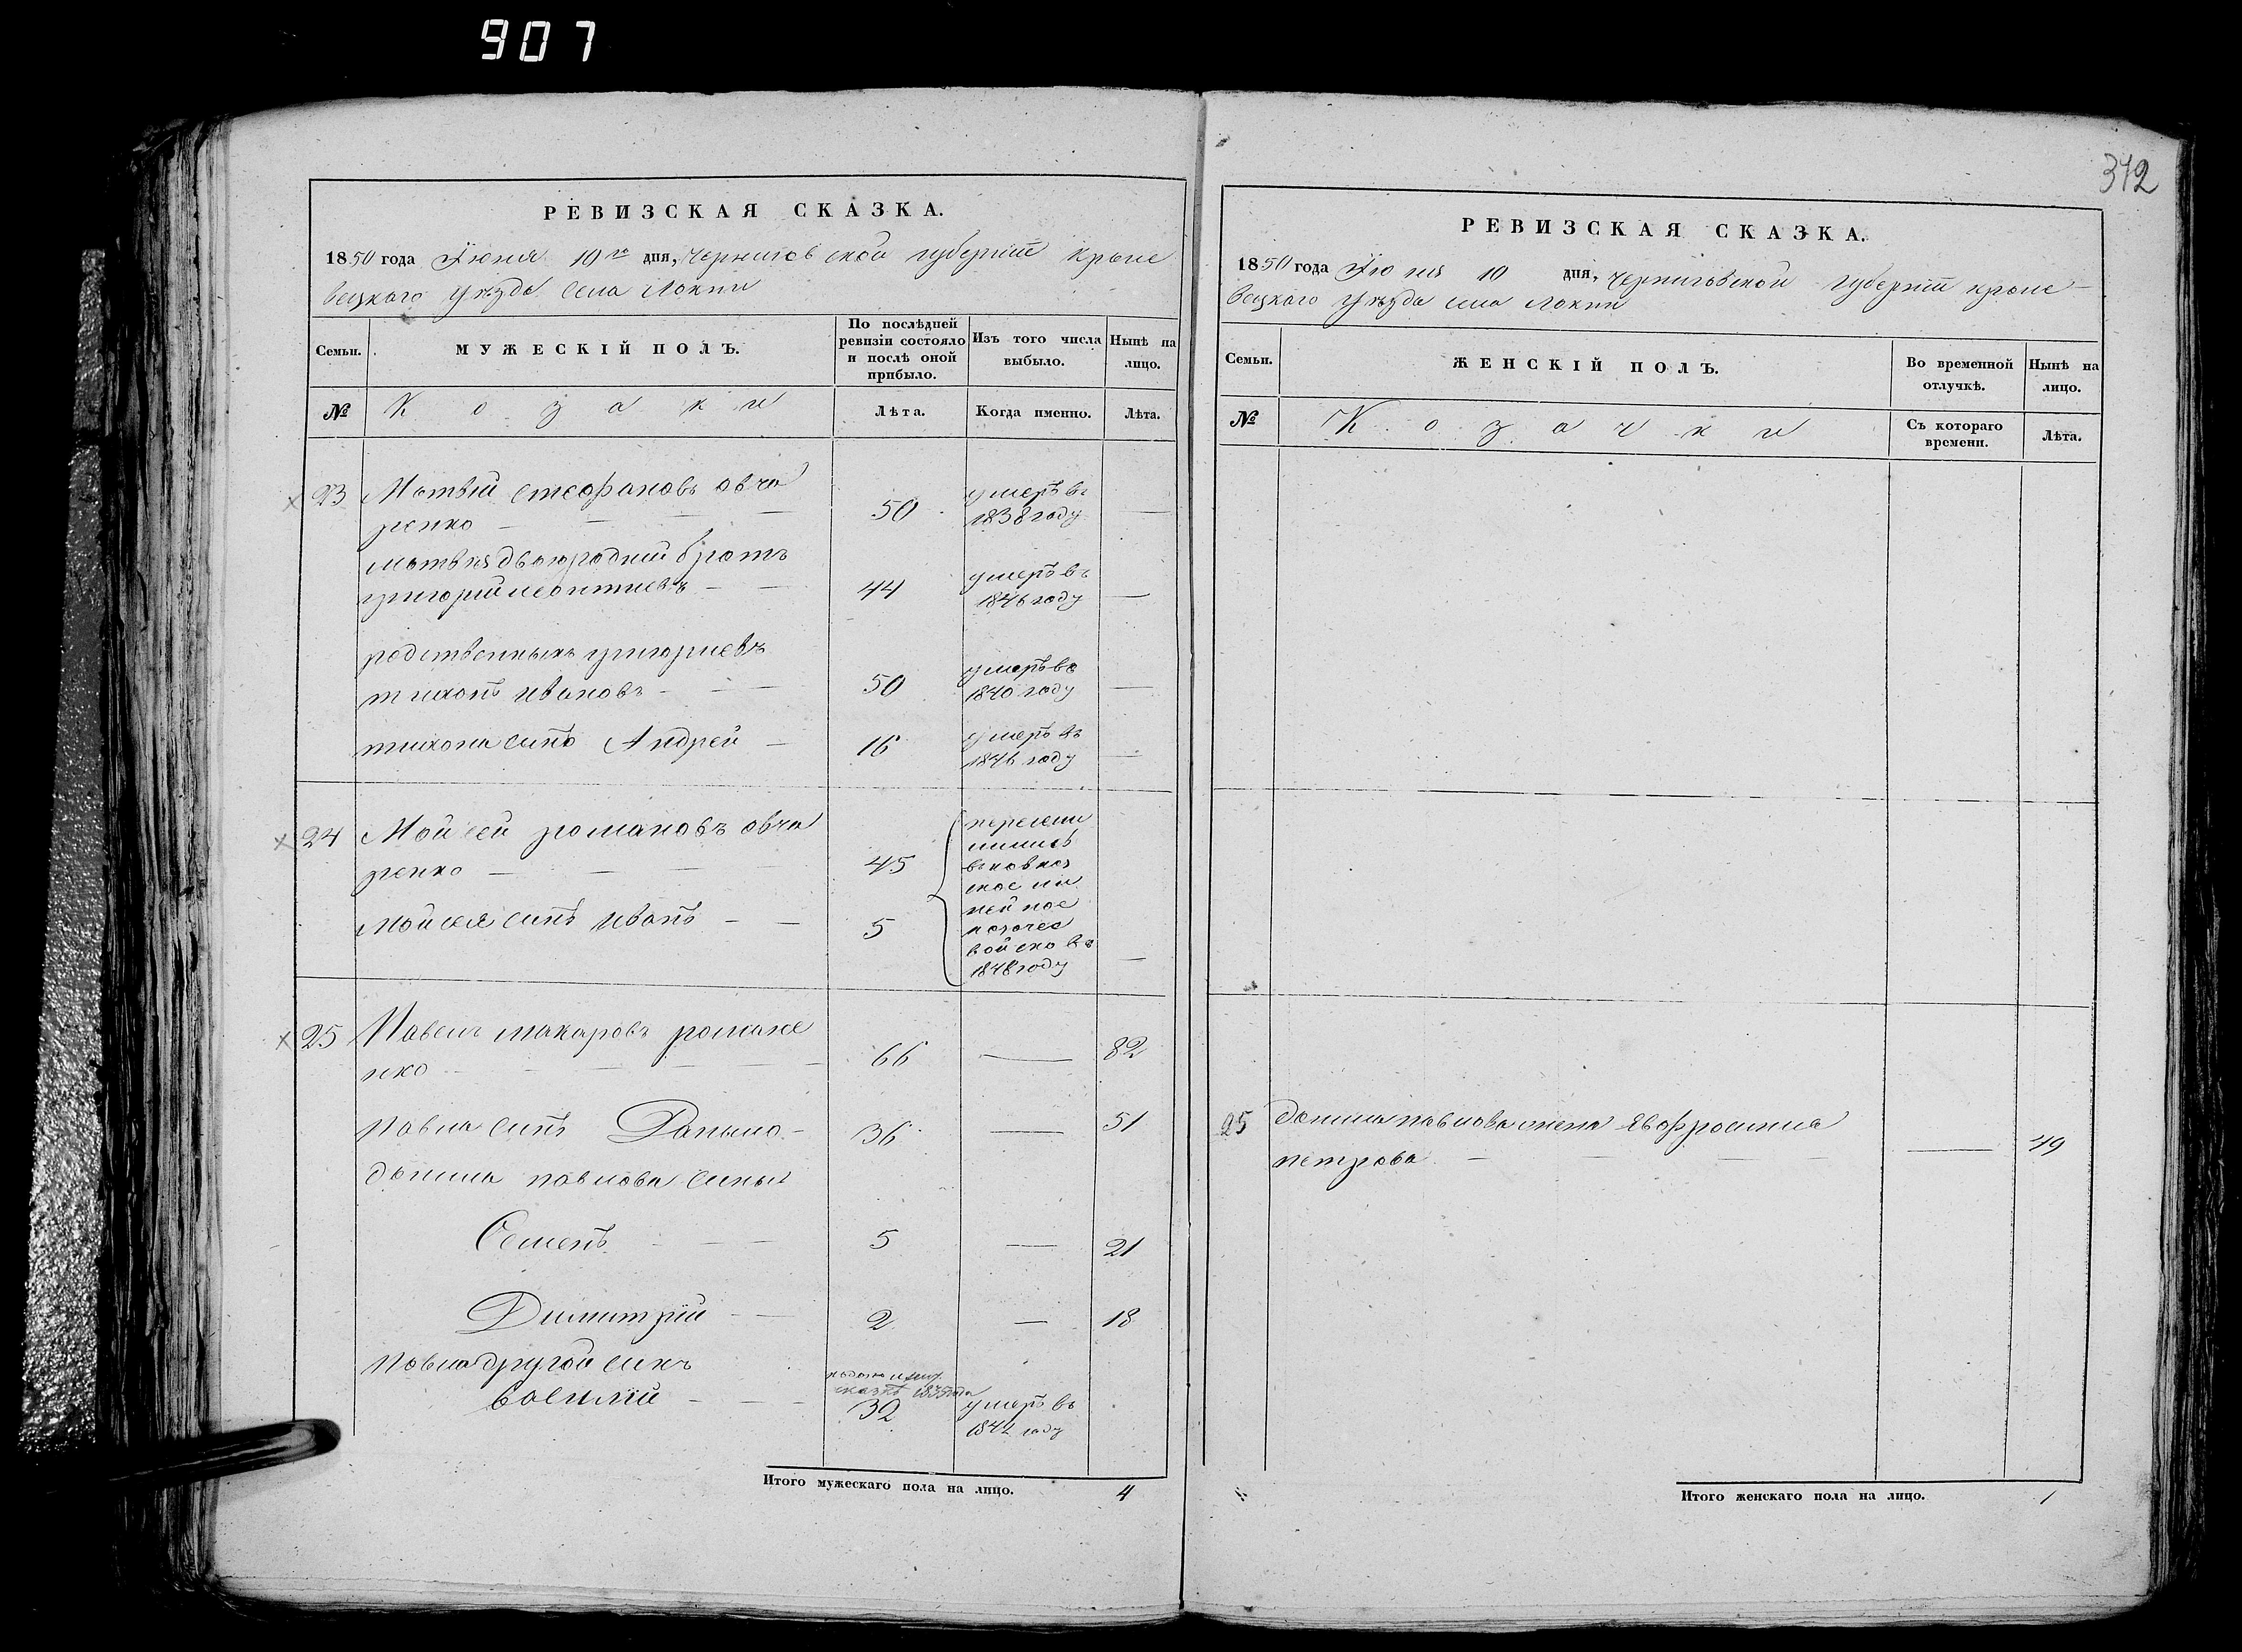 907
342
РЕВИЗСКАЯ СКАЗКА.
1850 года Іюня 10го дня, Черниговской губерніи кроле
вецкаго уѣзда села Локни
Семьи.
МУЖЕСКІЙ ПОЛЪ.
По послѣдней
ревизіи состояло
и послѣ оной
прибыло.
Изъ того числа
выбыло.
Нынѣ на
лицо.
№
Козаки
Лѣта.
Когда именно.
Лѣта.
23 Матвѣй Стефановъ овча
ренко 50 умеръ въ
1838 году
матвѣя двоюродный братъ
григорій леонтиевъ 44 умеръ въ
1846 году
родственникъ григориевъ
тихонъ ивановъ 50 умеръ въ
1840 году
тихона синъ Андрей 16 умеръ въ
1846 году
24 Мойсей романовъ овча
ренко 45
мойсея синъ иванъ 5
пересели
лись
въ кавказ
ское ли
нейное
козачее
войско въ
1848 году
25 Павелъ макаровъ романе
нко 66 82
павла синъ Данило 36 51
данила павлова сины
Семенъ 5 21
Димитрій 2 18
павла другой синъ
василій 32 умеръ въ
1842 году
Итого мужескаго пола на лицо. 4
РЕВИЗСКАЯ СКАЗКА.
1850 года Іюня 10 дня, Черниговской губерніи кроле
вецкаго уѣзда села Локни
Семьи.
ЖЕНСКІЙ ПОЛЪ.
Во временной
отлучкѣ.
Нынѣ на
лицо.
№
Козачки
Съ котораго
времени.
Лѣта.
25 данила павлова жена Евфросиния
петрова 49
Итого женскаго пола на лицо. 1